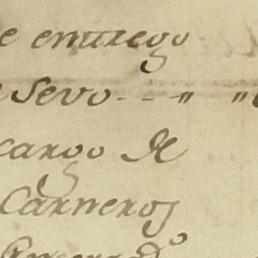 e entrego
Sevo - - - " "
cargo de
Carneros